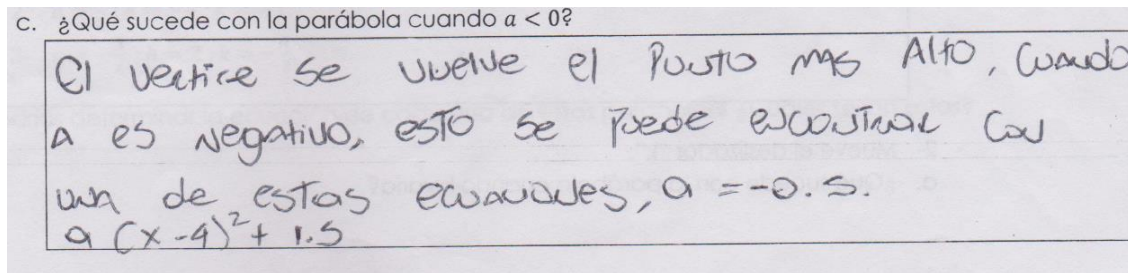 c. ¿Qué sucede con la parábola cuando a < 0?
El vertice se vuelve el Punto mas Alto, Cuando
a es negativo, esto se Puede encontrar con
una de estas ecuaciones, a = -0.5.
a (x-4)² + 1.5